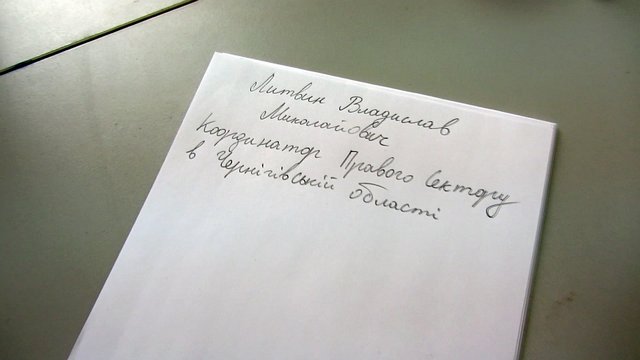 Литвин Владислав
Миколайович
Координатор Правого Сектору
в Чернігівській області